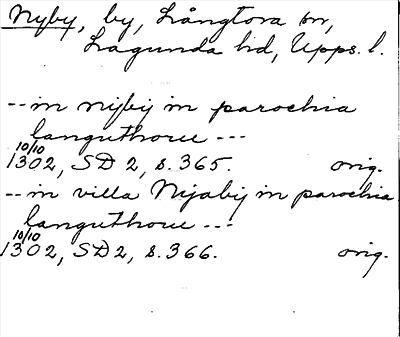 Nyby, by, Långtora sn,
Lagunda hd, Upps. l.
-- in nijbij in parochia
languthoru ---
10/10
1302, SD 2, s. 365. orig.
-- in villa Nijabij in parochia
languthoru ---
10/10
1302, SD 2, s. 366. orig.